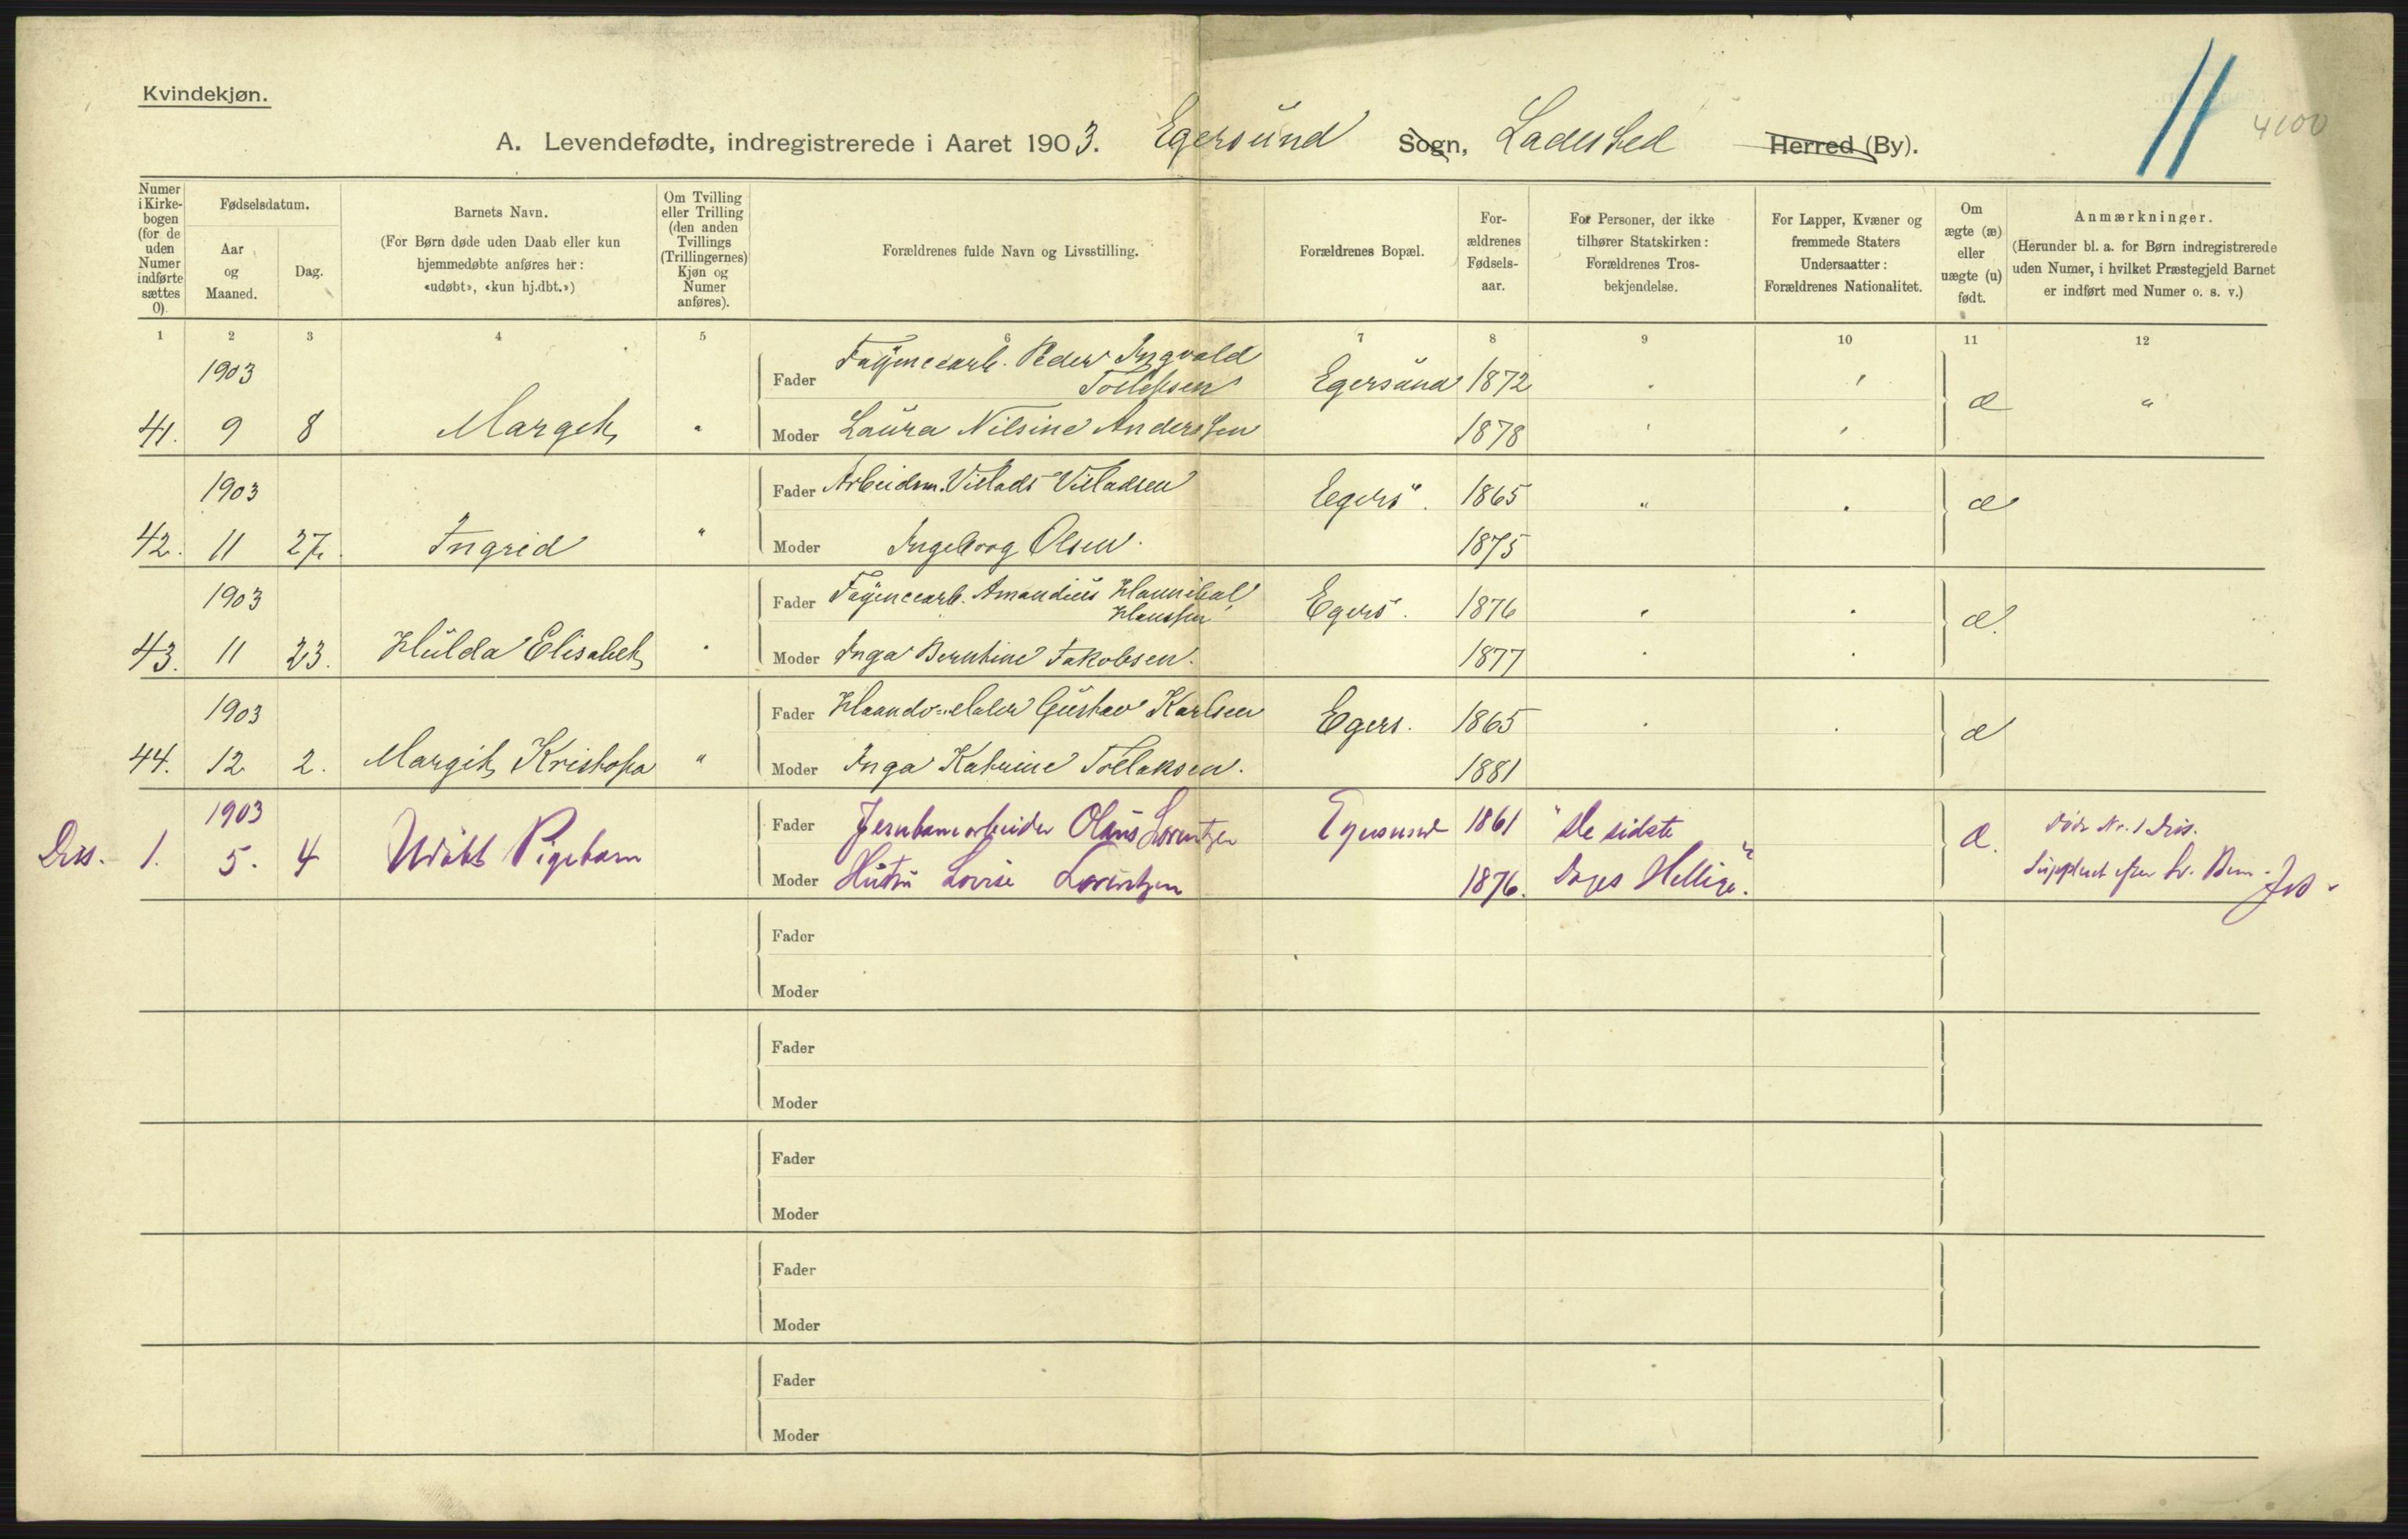 Kvindekjøn.
11
4100
A. Levendefødte, indregistrerede i Aaret 1903. Egersund Sogn, Ladested Herred (By).
Numer i Kirke-bogen (for de uden Numer indførte sættes 0).
Fødselsdatum.
Aar og Maaned.
Dag.
Barnets Navn.
(For Børn døde uden Daab eller kun hjemmedøbte anføres her: «udøbt», «kun hj.dbt.»)
Om Tvilling eller Trilling (den anden Tvillings (Trillingernes) Kjøn og Numer anføres).
Forældrenes fulde Navn og Livsstilling.
Forældrenes Bopæl.
For-ældrenes Fødsels-aar.
For Personer, der ikke tilhører Statskirken: Forældrenes Tros-bekjendelse.
For Lapper, Kvæner og fremmede Staters Undersaatter: Forældrenes Nationalitet.
Om ægte (æ) eller uægte (u) født.
Anmærkninger.
(Herunder bl. a. for Børn indregistrerede uden Numer, i hvilket Præstegjeld Barnet er indført med Numer o. s. v.)
1 2 3 4 5 6 7 8 9 10 11 12
1903 Fader Fayencearb. Peder Ingvald Tollefsen Egersund 1872
41. 9 8 Margit " Moder Laura Nilsine Anderssen 1878 æ "
1903 Fader Arbeidsm. Villads Villadsen Egers". 1865 "
42. 11 27. Ingrid " Moder Ingeborg Olsen. 1875 æ
1903 Fader Fayencearb. Amandus Hannibal Hanssen Egers". 1876
43. 11 23. Hulda Elisabet Moder Inga Berntine Jakobsen. 1877 æ.
1903 Fader Haandv. Maler Gustav Karlsen Egers. 1865
44. 12 2. Margit Kristofa " Moder Inga Katrine Tollaksen. 1881 æ
1903 Fader Jernbanearbeider Olaus Lorentzen Egersund 1861 "De sidste
Diss. 1. 5. 4 Udøbt Pigebarn Moder Hustru Lovise Lorentzen 1876. Dages Hellige." æ.
Døde Nr. 1 Diss.
Suppleret efter
Fader
Moder
Fader
Moder
Fader
Moder
Fader
Moder
Fader
Moder